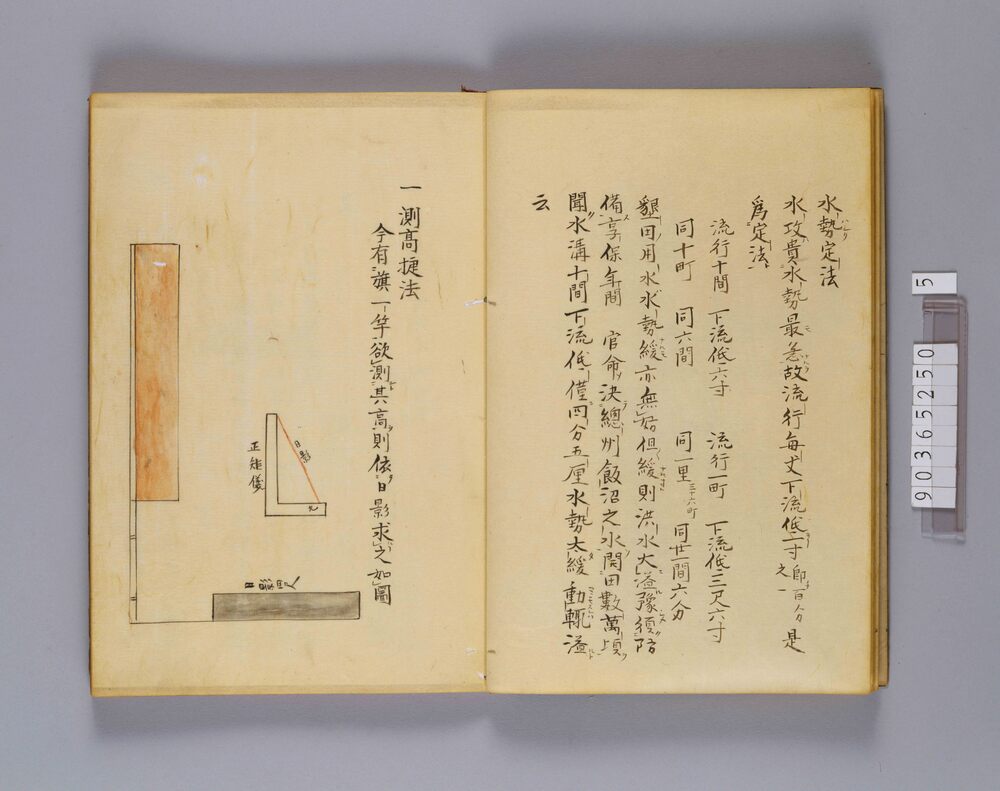 水勢定法
水攻貴水勢最急故流行毎丈下流低一寸即百分之一是
爲定法
流行十間 下流低六寸 流行一町 下流低三尺六寸
同十町 同六間 同一里三十六町 同廿一間六分
墾田用水水勢緩亦無妨但緩則洪水大溢豫須防
備享保年間 官命決總州飯沼之水開田數萬頃
聞水溝十間下流低僅四分五厘水勢太緩動輒溢
云
一 測高捷法
今有旗一竿欲測其高則依日影求之如圖
日影
正矩儀
尺
日影
5
9036525 0